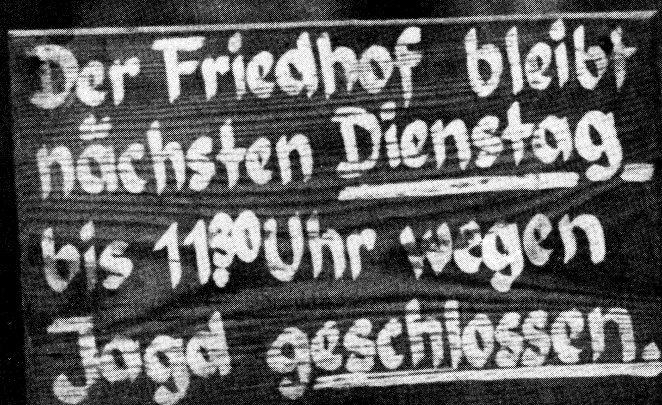 Der Friedhof bleibt
nächsten Dienstag
bis 11³⁰ Uhr wegen
Jagd geschlossen.